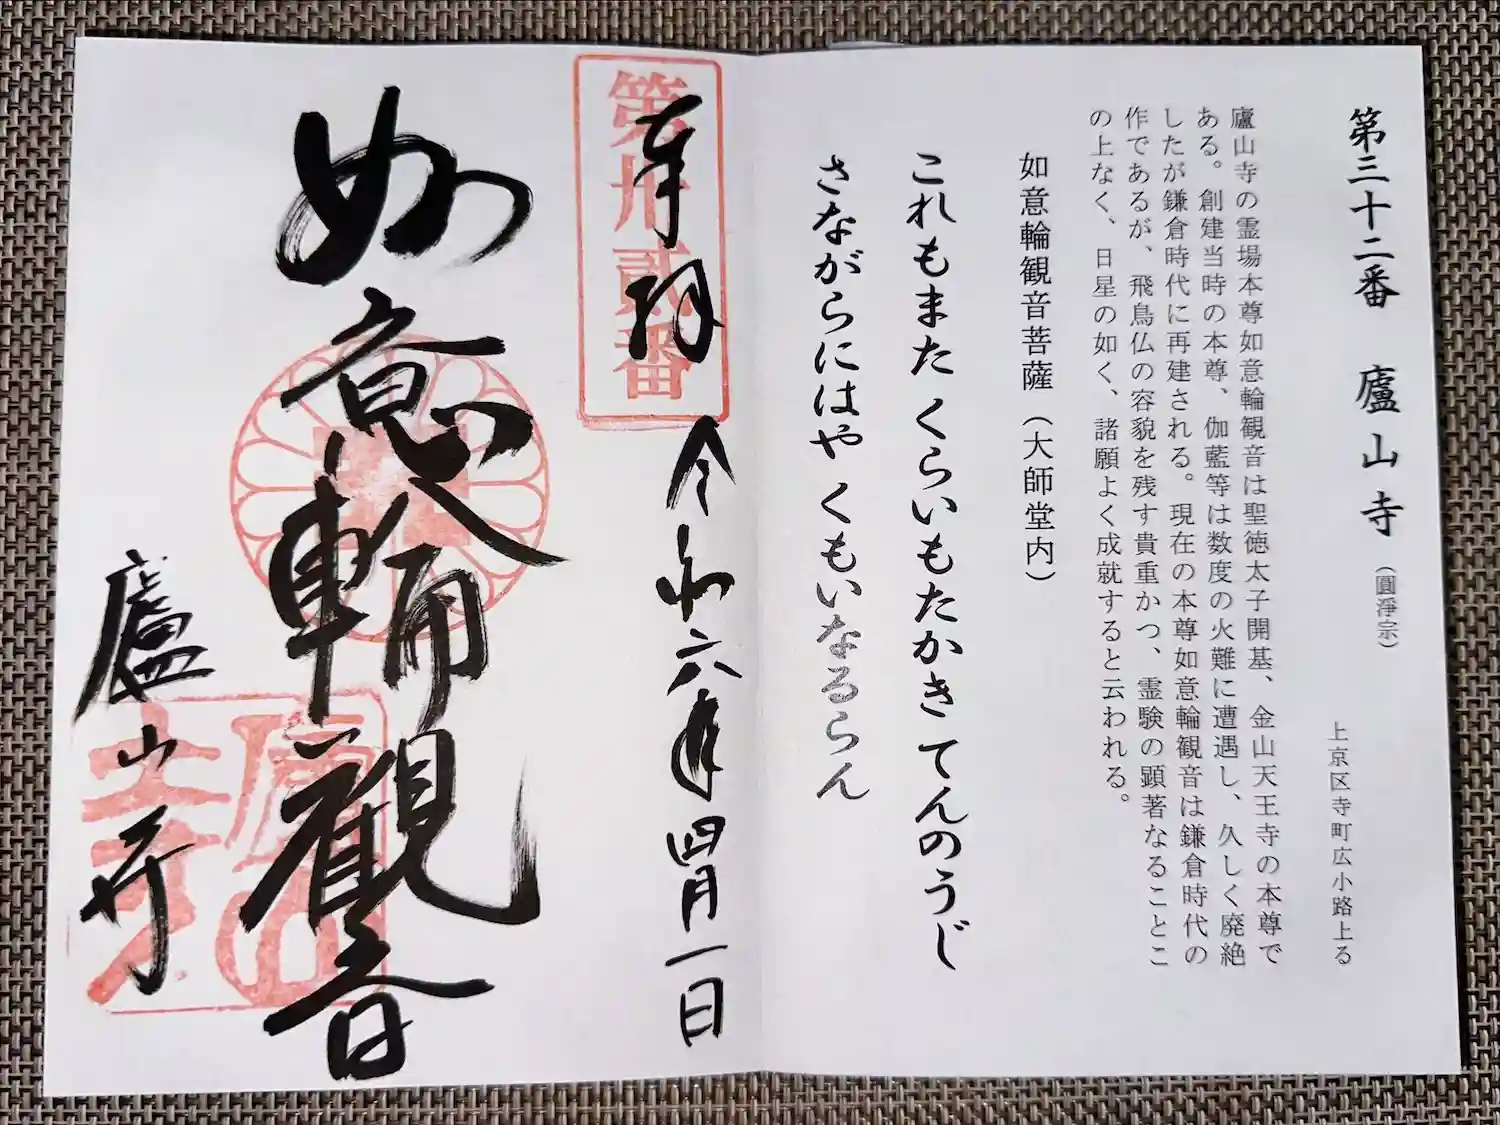 第三十二番　廬山寺（圓淨宗）
上京区寺町広小路上る
廬山寺の霊場本尊如意輪観音は聖徳太子開基、金山天王寺の本尊で
ある。創建当時の本尊、伽藍等は数度の火難に遭遇し、久しく廃絶
したが鎌倉時代に再建される。現在の本尊如意輪観音は鎌倉時代の
作であるが、飛鳥仏の容貌を残す貴重かつ、霊験の顕著なることこ
の上なく、日星の如く、諸願よく成就すると云われる。
如意輪観音菩薩（大師堂内）
これもまた くらいもたかき てんのうじ
さながらにはや くもいなるらん
第卅貳番
奉拝 令和六年四月一日
如意輪観音
廬山寺
廬山寺